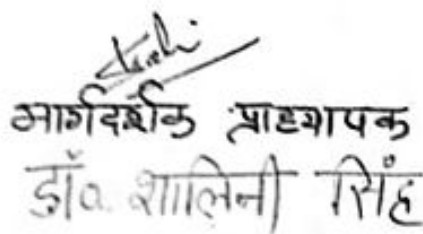 मार्गदर्शक प्राध्यापक
डॉ० शालिनी सिंह